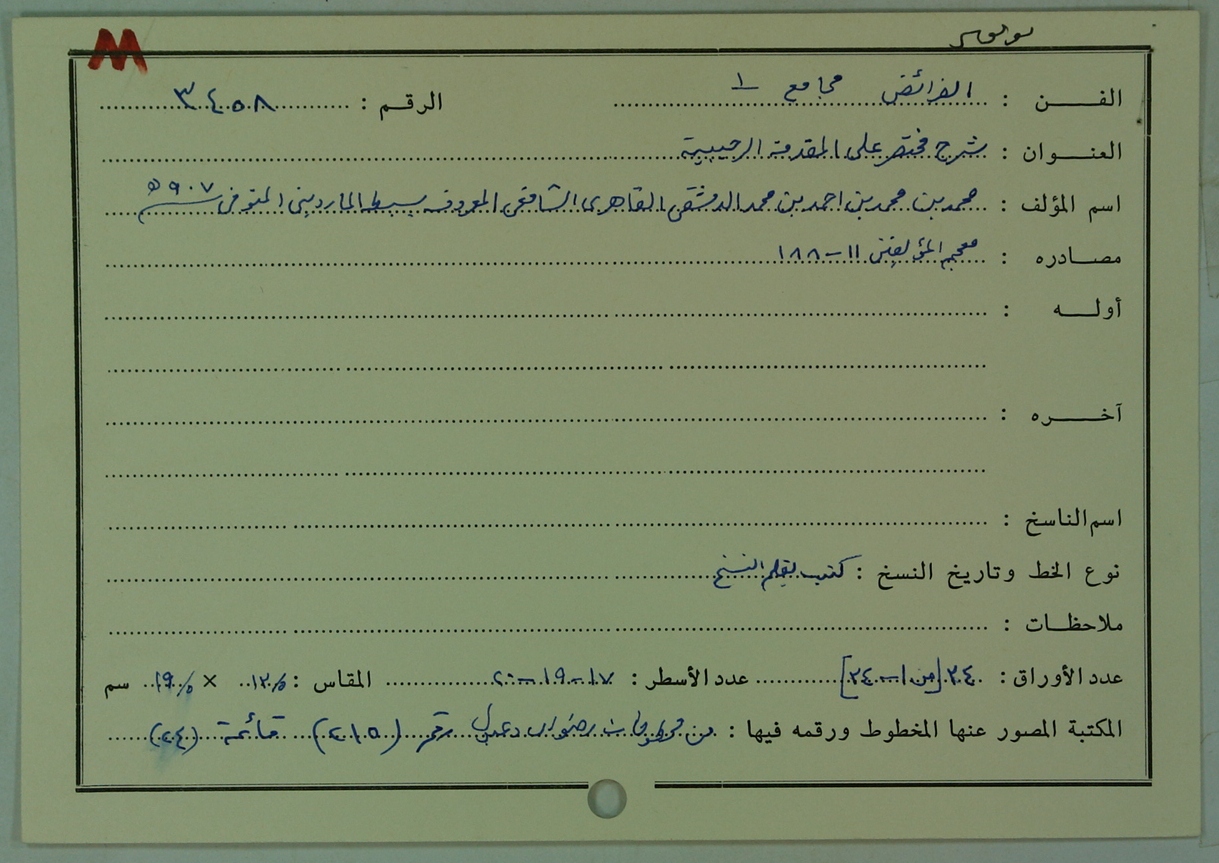 M
الفن : الفرائض مجامع ١ الرقم : ٣٤٥٨
العنوان : شرح مختصر على المقدمة الرحبية
اسم المؤلف : محمد بن محمد بن احمد بن محمد الدمشقي القاهرى الشافعي المعروف بسبط المارديني المتوفى ٩٠٧ هـ
مصادره : معجم المؤلفين ١١ - ١٨٨
أوله :
آخره :
اسم الناسخ :
نوع الخط وتاريخ النسخ : كتب بقلم النسخ
ملاحظات :
عدد الأوراق : ٣٤ [من ١ - ٣٤] عدد الأسطر : ١٧ - ١٩ - ٢٠ المقاس : ١٣/٥ × ١٩/٥ سم
المكتبة المصور عنها المخطوط ورقمه فيها : من مخطوطات رضوان دعبول رقم (٢١٥) قائمة (٢٤)